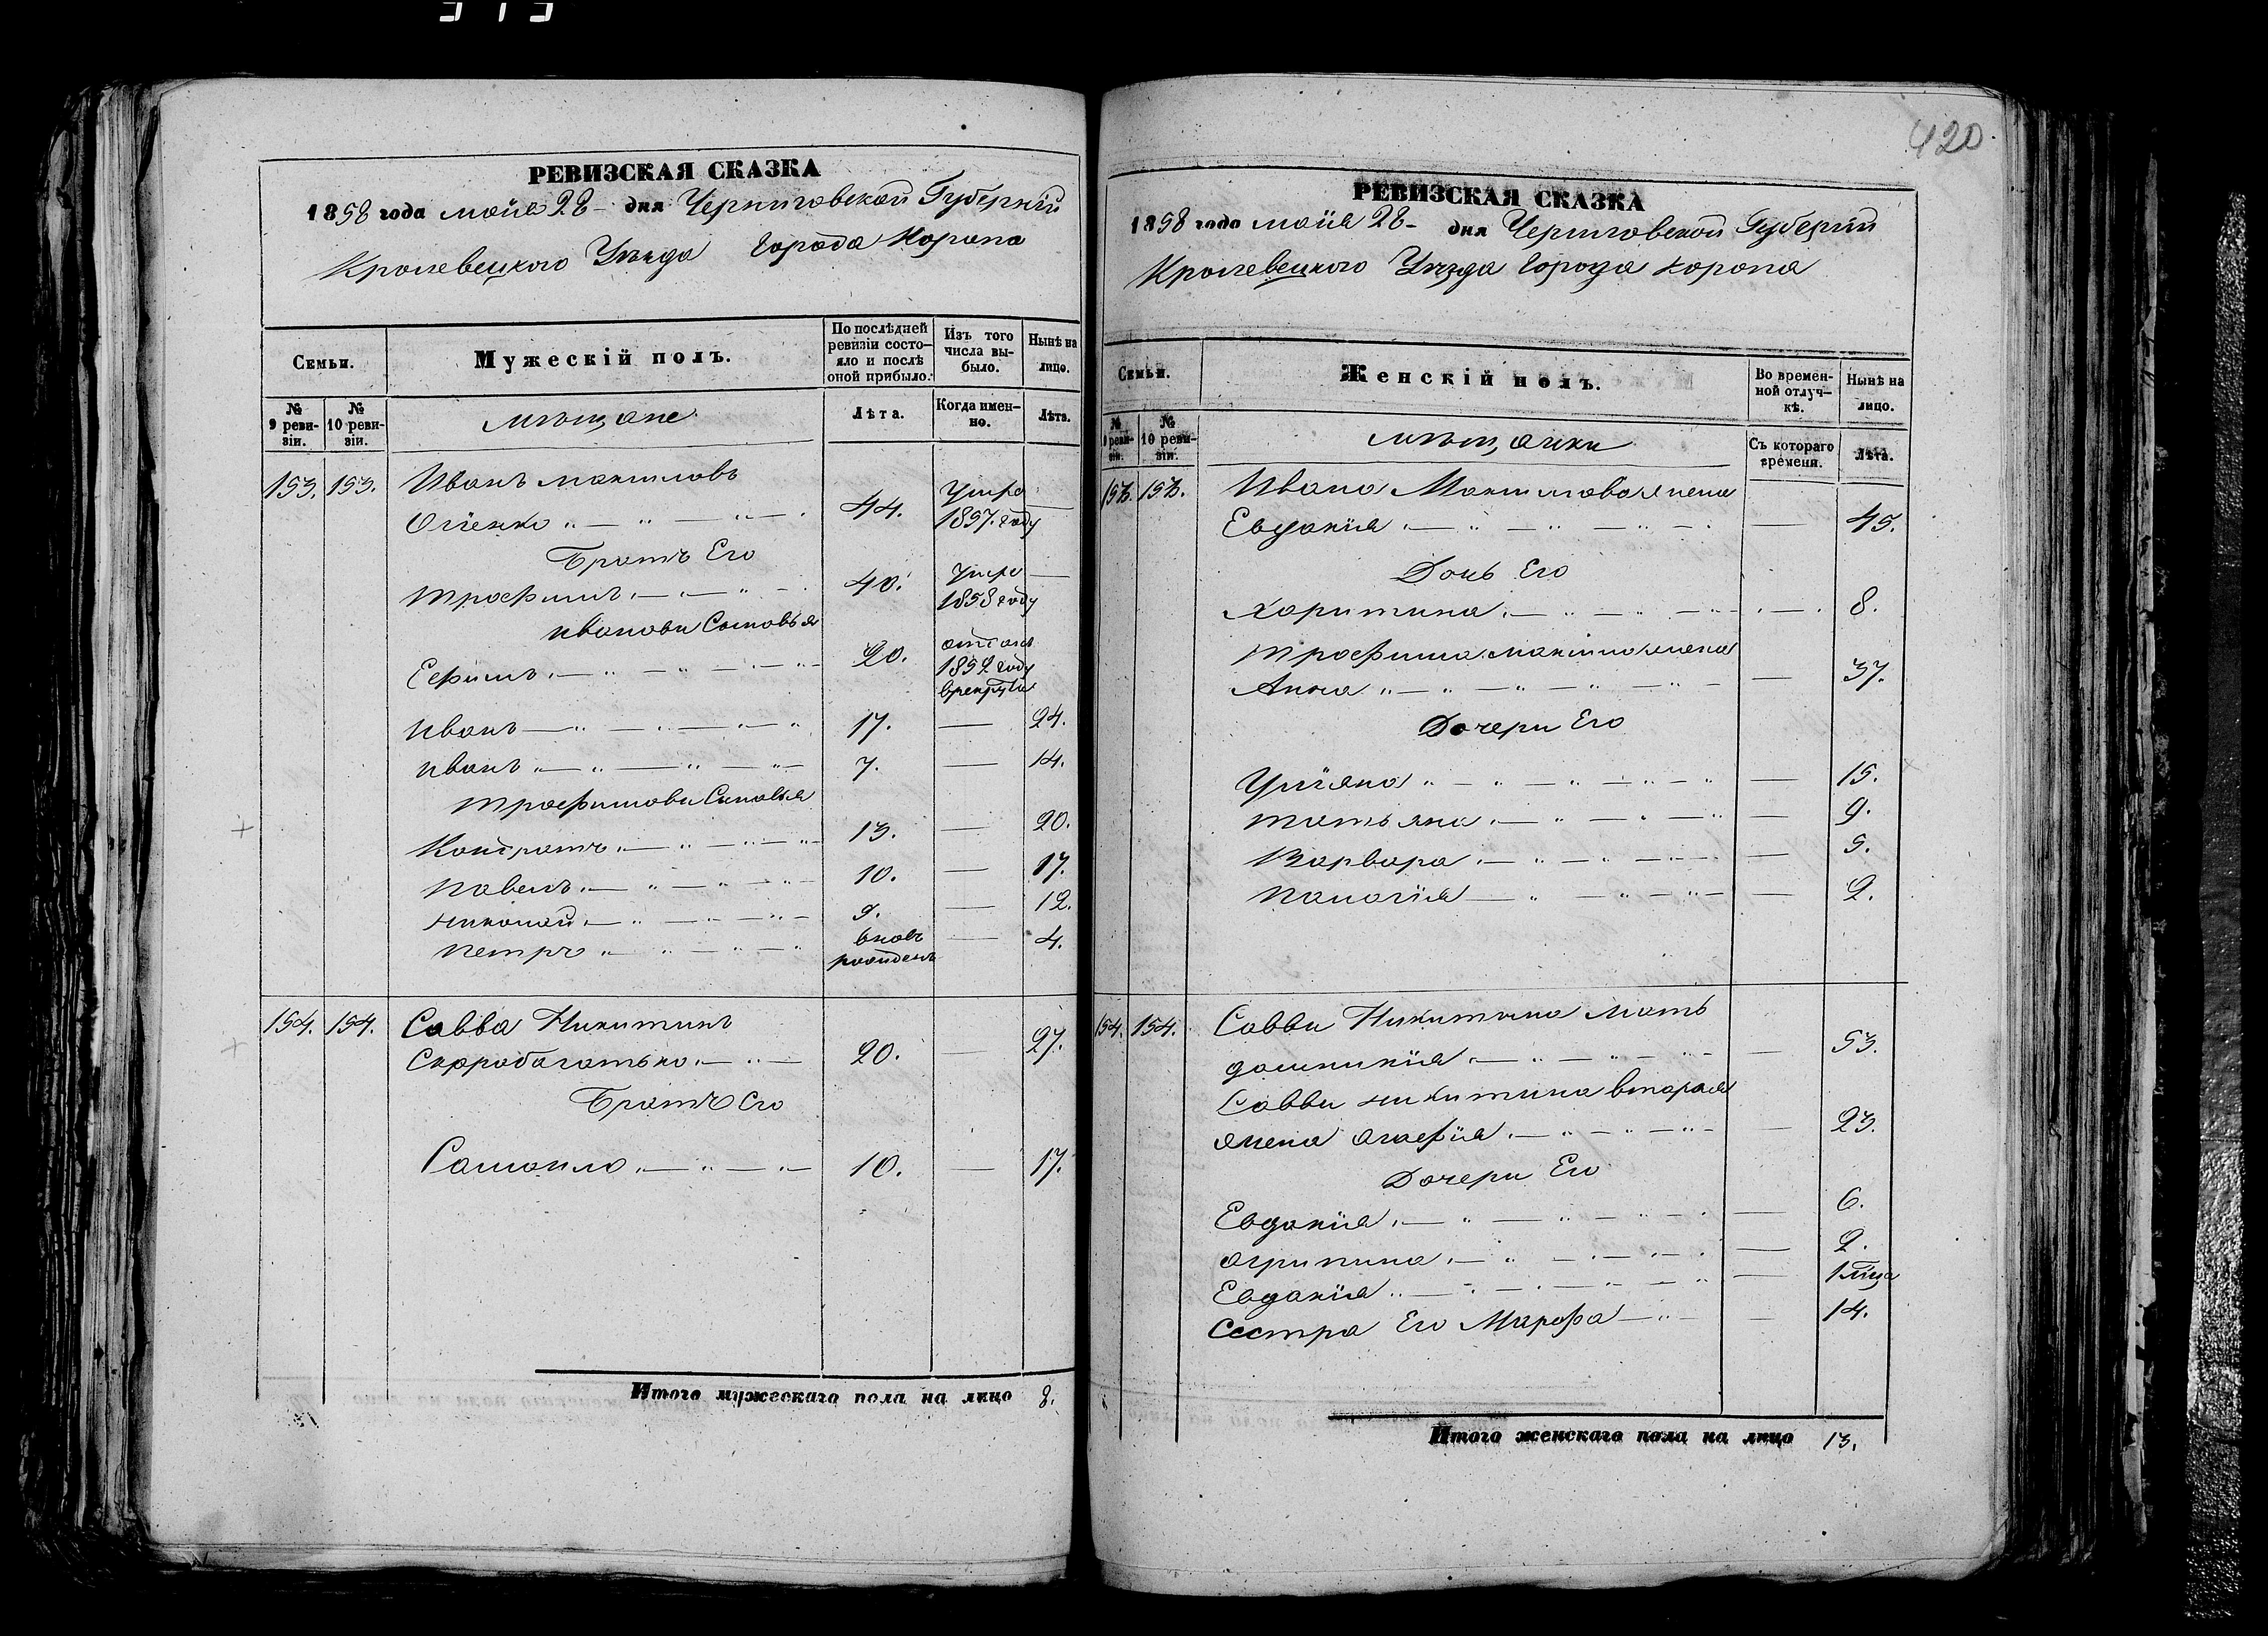 420
РЕВИЗСКАЯ СКАЗКА
1858 года маія 28 - дня Черниговской Губерніи
Кролевецкого Уѣзда Города Коропа
Семьи.
Мужескій полъ.
По послѣдней ревизіи состояло и послѣ оной прибыло.
Изъ того числа выбыло.
Нынѣ на лицо.
№ 9 ревизіи.
№ 10 ревизіи.
мѣщане
Лѣта.
Когда именно.
Лѣта.
153. 153. Иванъ Максимовъ
44. Умре 1857. году
Братъ Его
Трофимъ 40. Умре 1858 году
Ивановы Сыновья
Ефимъ 20. 1852 году
Иванъ 17. — 24.
Иванъ 7. — 14.
Трофимовы Сыновья
Кондратъ 13. — 20.
Павелъ 10. — 17.
Николай 9. — 12.
Петръ вновь рожденъ — 4.
154. 154. Савва Никитинъ
Скоробагатько 20. — 27.
Братъ Его
Самойло 10. — 17.
Итого мужескаго пола на лицо 8.
РЕВИЗСКАЯ СКАЗКА
1858 года маія 28 - дня Черниговской Губерніи
Кролевецкого Уѣзда Города Коропа
Семьи.
Женскій полъ.
Во временной отлучкѣ.
Нынѣ на лицо.
№ 9 ревизіи.
№ 10 ревизіи.
мѣщанки
Съ котораго времени.
Лѣта.
153. 153. Ивана Максимова жена
Евдокія — 45.
Дочь Его
Харитина — 8.
Трофима Максимова жена
Анна — 37.
Дочери Его
Уліяна — 15.
Татьяна — 9.
Варвара — 5.
Палагія — 2.
154. 154. Саввы Никитина мать
Домникія — 53.
Саввы Никитина вторая
жена Агафія — 23.
Дочери Его
Евдокія — 6.
Агрипина — 2.
Евдокія — 1 мца
Сестра Его Марфа — 14.
Итого женскаго пола на лицо 13.